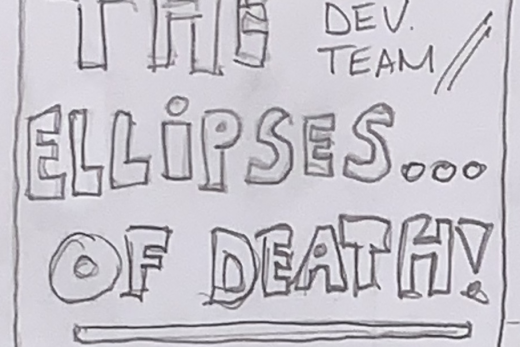 THE
DEV.
TEAM //
ELLiPSES...
OF DEATH!